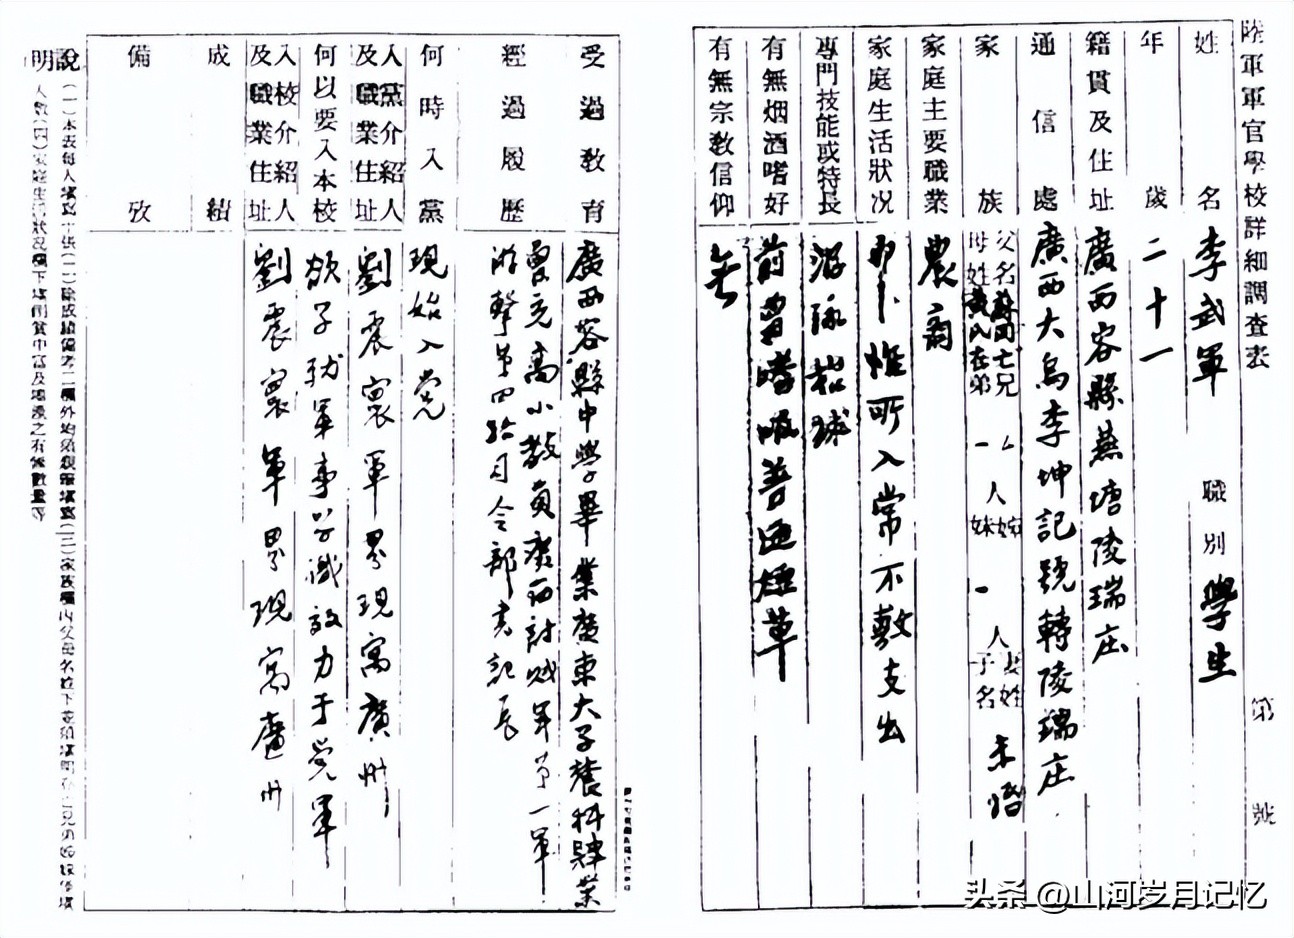 陸軍軍官學校詳細調查表 第 號
姓名 李武軍 職別 學生
年歲 二十一
籍貫及住址 廣西容縣燕塘陵瑞庄
通信處 廣西大烏李坤記號轉陵瑞庄
家族 父名 亡兄 人 妻姓 未婚
母姓 在弟 一人 妹 人 子名
家庭主要職業 農商
家庭生活狀况 惟所入常不敷支出
專門技能或特長 游泳 球
有無烟酒嗜好 前曾嗜吸普通煙草
有無宗教信仰 無
受過教育 廣西容縣中學畢業廣東大子農科肄業
經過履歷 曾充高小教員廣西討賊軍第一軍
游擊第四路司令部書記長
何時入黨 現始入党
入黨介紹人及職業住址 劉震寰軍界現寓廣州
何以要入本校 欲子 軍事學識效力于党軍
入校介紹人及職業住址 劉震寰軍界現寓廣州
成績
備攷
說明 (一)本表每人填寫 張(二)除成績備考二欄外均須親筆填寫(三)家族欄內父母名姓下
人數(四)家庭生活狀况欄下填 及 之有無數量等
头条 @山河岁月记忆